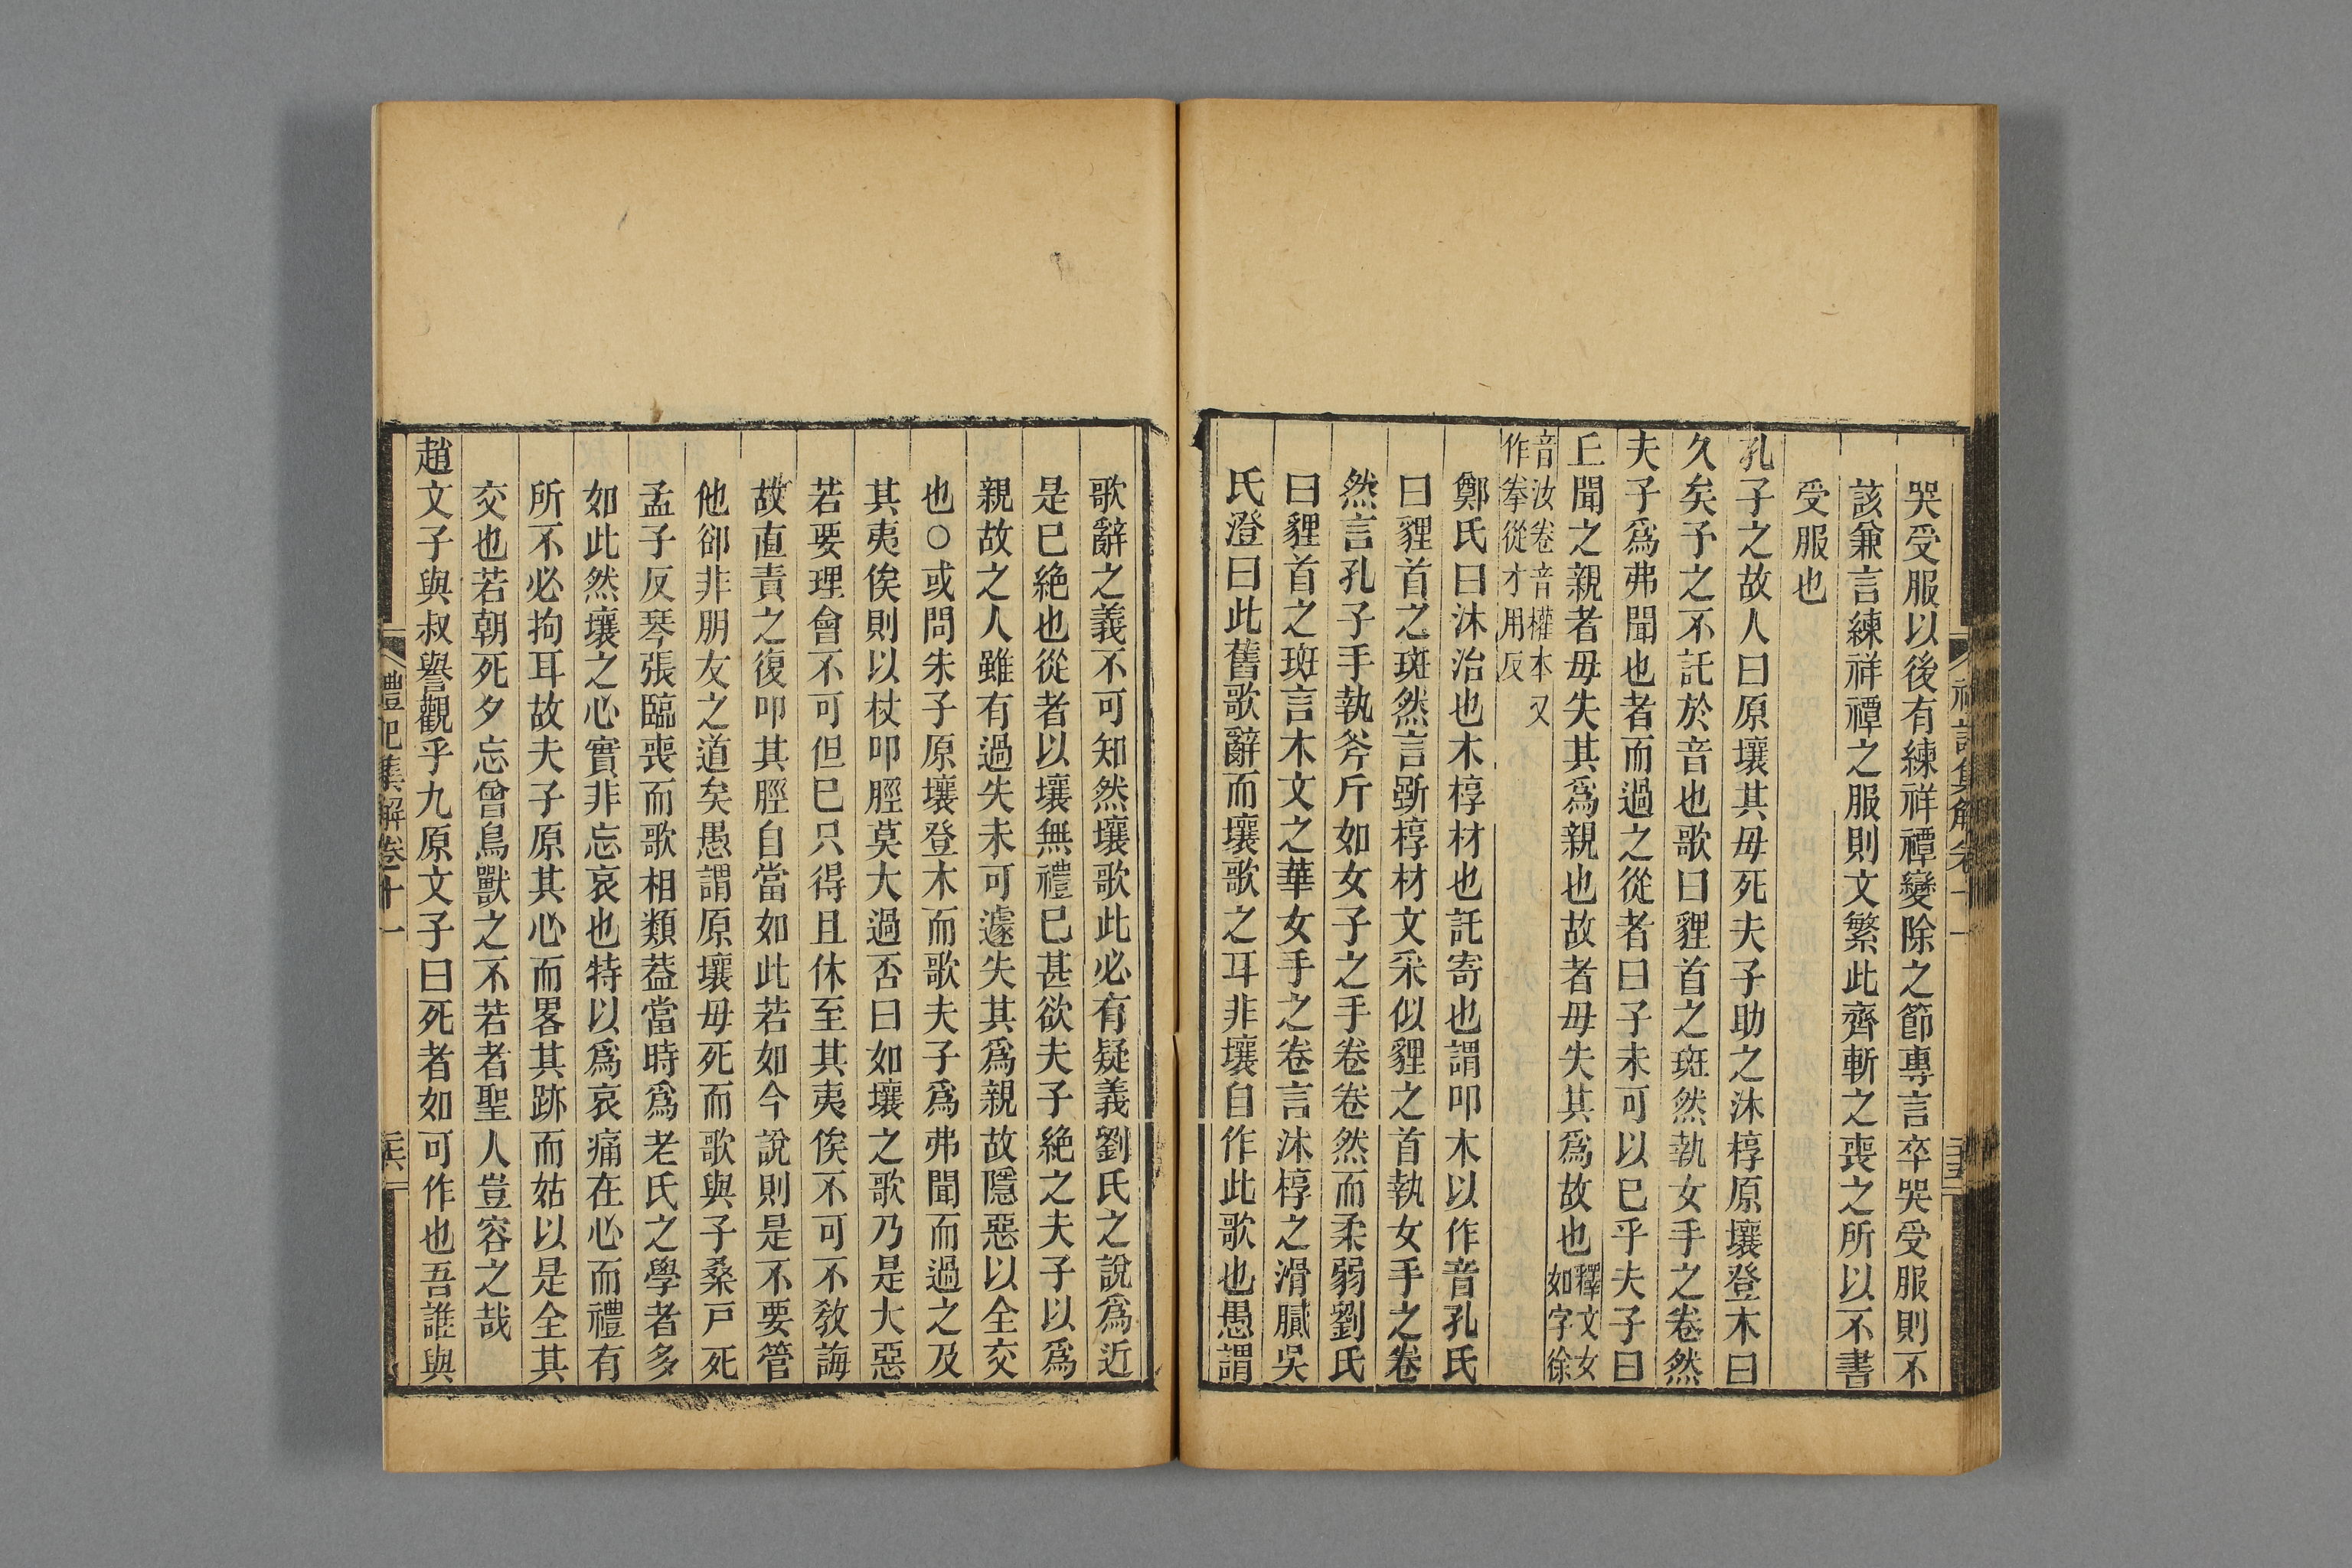 哭受服以後有練祥禫變除之節專言卒哭受服則不
該兼言練祥禫之服則文繁此齊斬之喪之所以不書
受服也
孔子之故人曰原壤其毋死夫子助之沐椁原壤登木曰
久矣予之不託於音也歌曰貍首之斑然執女手之卷然
夫子爲弗聞也者而過之從者曰子未可以已乎夫子曰
丘聞之親者毋失其爲親也故者毋失其爲故也釋文女如字徐
音汝卷音權本又作拳從才用反
鄭氏曰沐治也木椁材也託寄也謂叩木以作音孔氏
曰貍首之斑然言斲椁材文采似貍之首執女手之卷
然言孔子手執斧斤如女子之手卷卷然而柔弱劉氏
曰貍首之斑言木文之華女手之卷言沐椁之滑膩吳
氏澄曰此舊歌辭而壤歌之耳非壤自作此歌也愚謂
歌辭之義不可知然壤歌此必有疑義劉氏之說爲近
是已絶也從者以壤無禮已甚欲夫子絶之夫子以爲
親故之人雖有過失未可遽失其爲親故隱惡以全交
也○或問朱子原壤登木而歌夫子爲弗聞而過之及
其夷俟則以杖叩脛莫大過否曰如壤之歌乃是大惡
若要理會不可但已只得且休至其夷俟不可不敎誨
故直責之復叩其脛自當如此若如今說則是不要管
他卻非朋友之道矣愚謂原壤毋死而歌與子桑戸死
孟子反琴張臨喪而歌相類葢當時爲老氏之學者多
如此然壤之心實非忘哀也特以爲哀痛在心而禮有
所不必拘耳故夫子原其心而畧其跡而姑以是全其
交也若朝死夕忘曾鳥獸之不若者聖人豈容之哉
趙文子與叔譽觀乎九原文子曰死者如可作也吾誰與
禮記集解卷十一